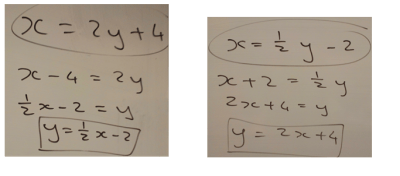 x = 2y + 4
x - 4 = 2y
½x - 2 = y
y = ½x - 2
x = ½y - 2
x + 2 = ½y
2x + 4 = y
y = 2x + 4